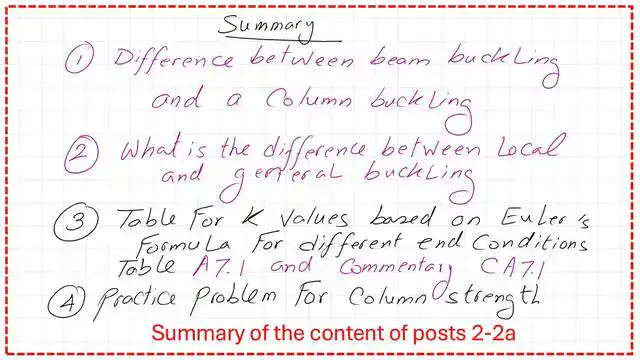 Summary
① Difference between beam buckling
and a Column buckling
② What is the difference between Local
and general buckling
③ Table For K Values based on Euler's
Formula For different end Conditions
Table A7.1 and Commentary CA7.1
④ Practice Problem For Column strength
Summary of the content of posts 2-2a